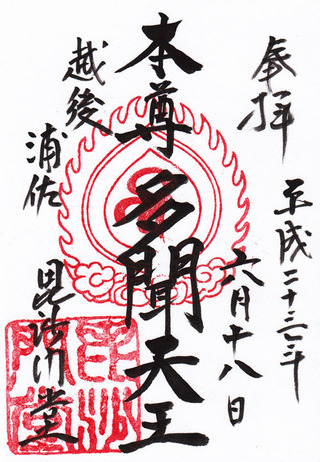 奉拝
平成二十三年
六月十八日
本尊
多聞天王
越後
浦佐
毘沙門堂